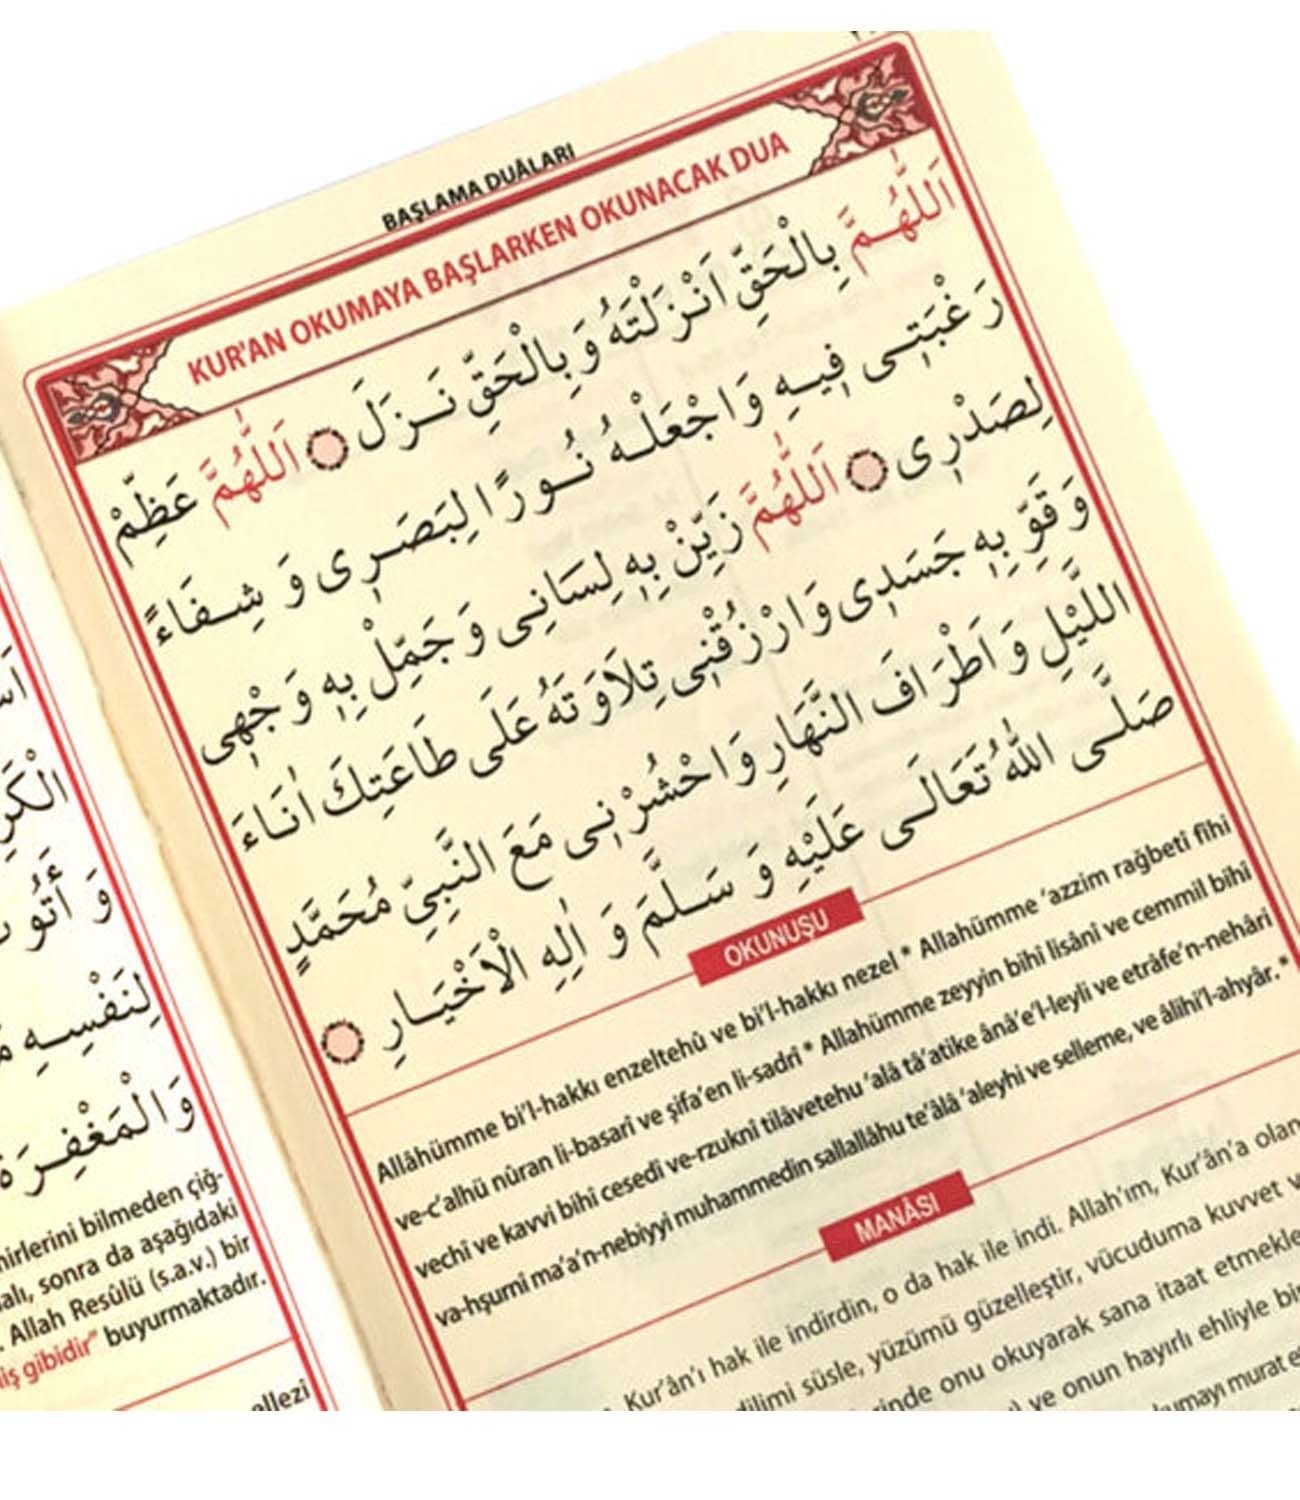 BAŞLAMA DUÂLARI
KUR'AN OKUMAYA BAŞLARKEN OKUNACAK DUA
اَللّٰهُمَّ بِالْحَقِّ اَنْزَلْتَهُ وَبِالْحَقِّ نَزَلَ اَللّٰهُمَّ عَظِّمْ
رَغْبَتِى فِيهِ وَاجْعَلْهُ نُورًا لِبَصَرِى وَ شِفَاءً
لِصَدْرِى اَللّٰهُمَّ زَيِّنْ بِهِ لِسَانِى وَ جَمِّلْ بِهِ وَجْهِى
وَ قَوِّ بِهِ جَسَدِى وَارْزُقْنِى تِلَاوَتَهُ عَلَى طَاعَتِكَ اٰنَاءَ
اللَّيْلِ وَ اَطْرَافَ النَّهَارِ وَاحْشُرْنِى مَعَ النَّبِيِّ مُحَمَّدٍ
صَلَّى اللّٰهُ تَعَالَى عَلَيْهِ وَ سَلَّمَ وَ اٰلِهِ الْاَخْيَارِ
OKUNUŞU
Allâhümme bi'l-hakkı enzeltehû ve bi'l-hakkı nezel * Allahümme 'azzim rağbetî fîhi
ve-c'alhü nûran li-basarî ve şifa'en li-sadrî * Allahümme zeyyin bihî lisânî ve cemmil bihî
vechî ve kavvi bihî cesedî ve-rzuknî tilâvetehu 'alâ tâ'atike ânâ'e'l-leyli ve etrâfe'n-nehâri
va-hşurnî ma'a'n-nebiyyi muhammedin sallallâhu te'âlâ 'aleyhi ve selleme, ve âlihi'l-ahyâr. *
MANÂSI
Kur'ân'ı hak ile indirdin, o da hak ile indi. Allah'ım, Kur'ân'a olan
dilimi süsle, yüzümü güzelleştir, vücuduma kuvvet
onu okuyarak sana itaat etmekle
ve onun hayırlı ehliyle
murat
الْكَرِ
لِنَفْسِهِ
وَالْمَغْفِرَةَ
bilmeden çiğ-
sonra da aşağıdaki
Allah Resûlü (s.a.v.) bir
gibidir" buyurmaktadır.